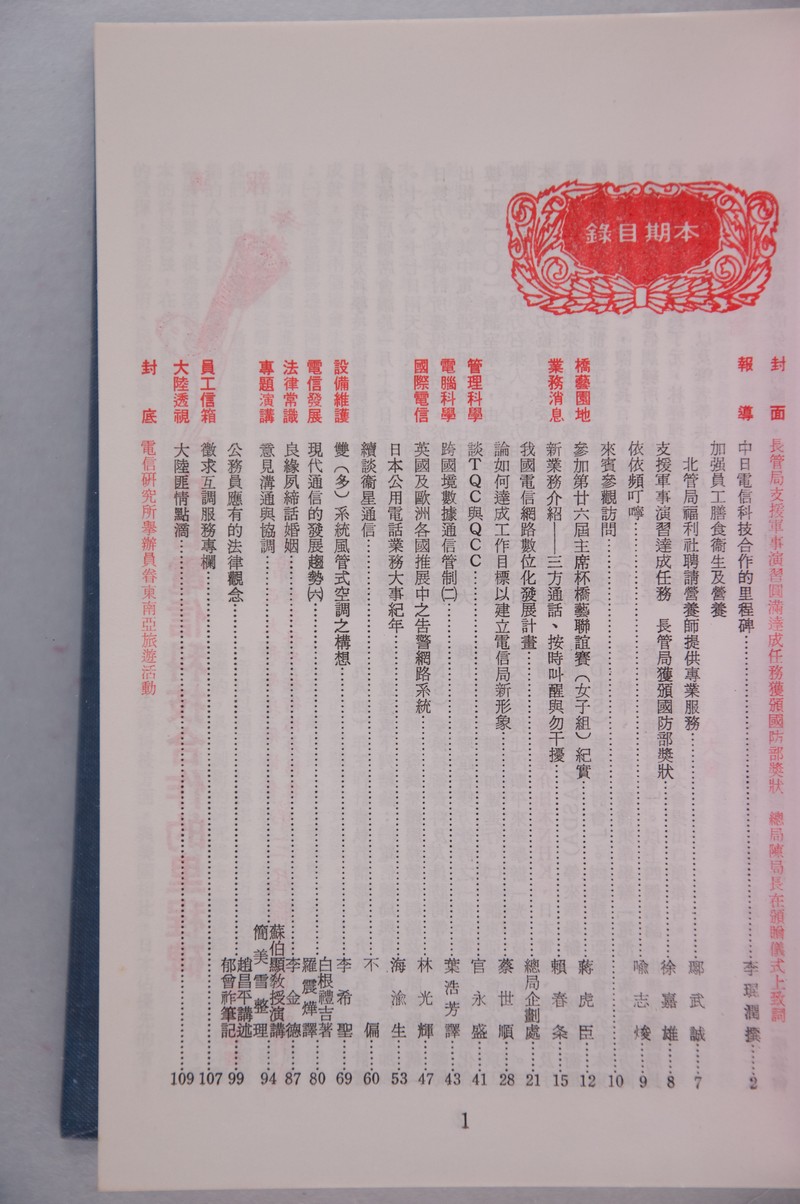 本期目錄
封面 長管局支援軍事演習圓滿達成任務獲頒國防部獎狀 總局陳局長在頒贈儀式上致詞
報導 中日電信科技合作的里程碑 李琨潤撰 2
加强員工膳食衞生及營養
北管局福利社聘請營養師提供專業服務 鄺武誠 7
支援軍事演習達成任務 長管局獲頒國防部獎狀 徐嘉雄 8
依依頻叮嚀 喩志焌 9
來賓參觀訪問 10
橋藝園地 參加第廿六屆主席杯橋藝聯誼賽（女子組）紀實 蔣虎臣 12
業務消息 新業務介紹——三方通話、按時叫醒與勿干擾 賴春条 15
我國電信網路數位化發展計畫 總局企劃處 21
論如何達成工作目標以建立電信局新形象 蔡世順 28
管理科學 談TQC與QCC 官永盛 41
電腦科學 跨國境數據通信管制㈡ 葉浩芳譯 43
國際電信 英國及歐洲各國推展中之告警網路系統 林光輝 47
日本公用電話業務大事紀年 海渝生 53
續談衞星通信 不偏 60
設備維護 雙（多）系統風管式空調之構想 李希聖 69
電信發展 現代通信的發展趨勢㈥ 白根禮吉著 羅震燁譯 80
法律常識 良緣夙締話婚姻 李金德 87
專題演講 意見溝通與協調 蘇伯顯教授演講 簡美雪整理 94
公務員應有的法律觀念 趙昌平講述 郁曾祚筆記 99
員工信箱 徵求互調服務專欄 107
大陸透視 大陸匪情點滴 109
封底 電信研究所舉辦員眷東南亞旅遊活動
1